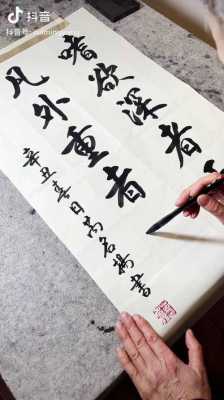 抖音
抖音号:
嗜欲深者
凡外重者
辛丑春日名扬书